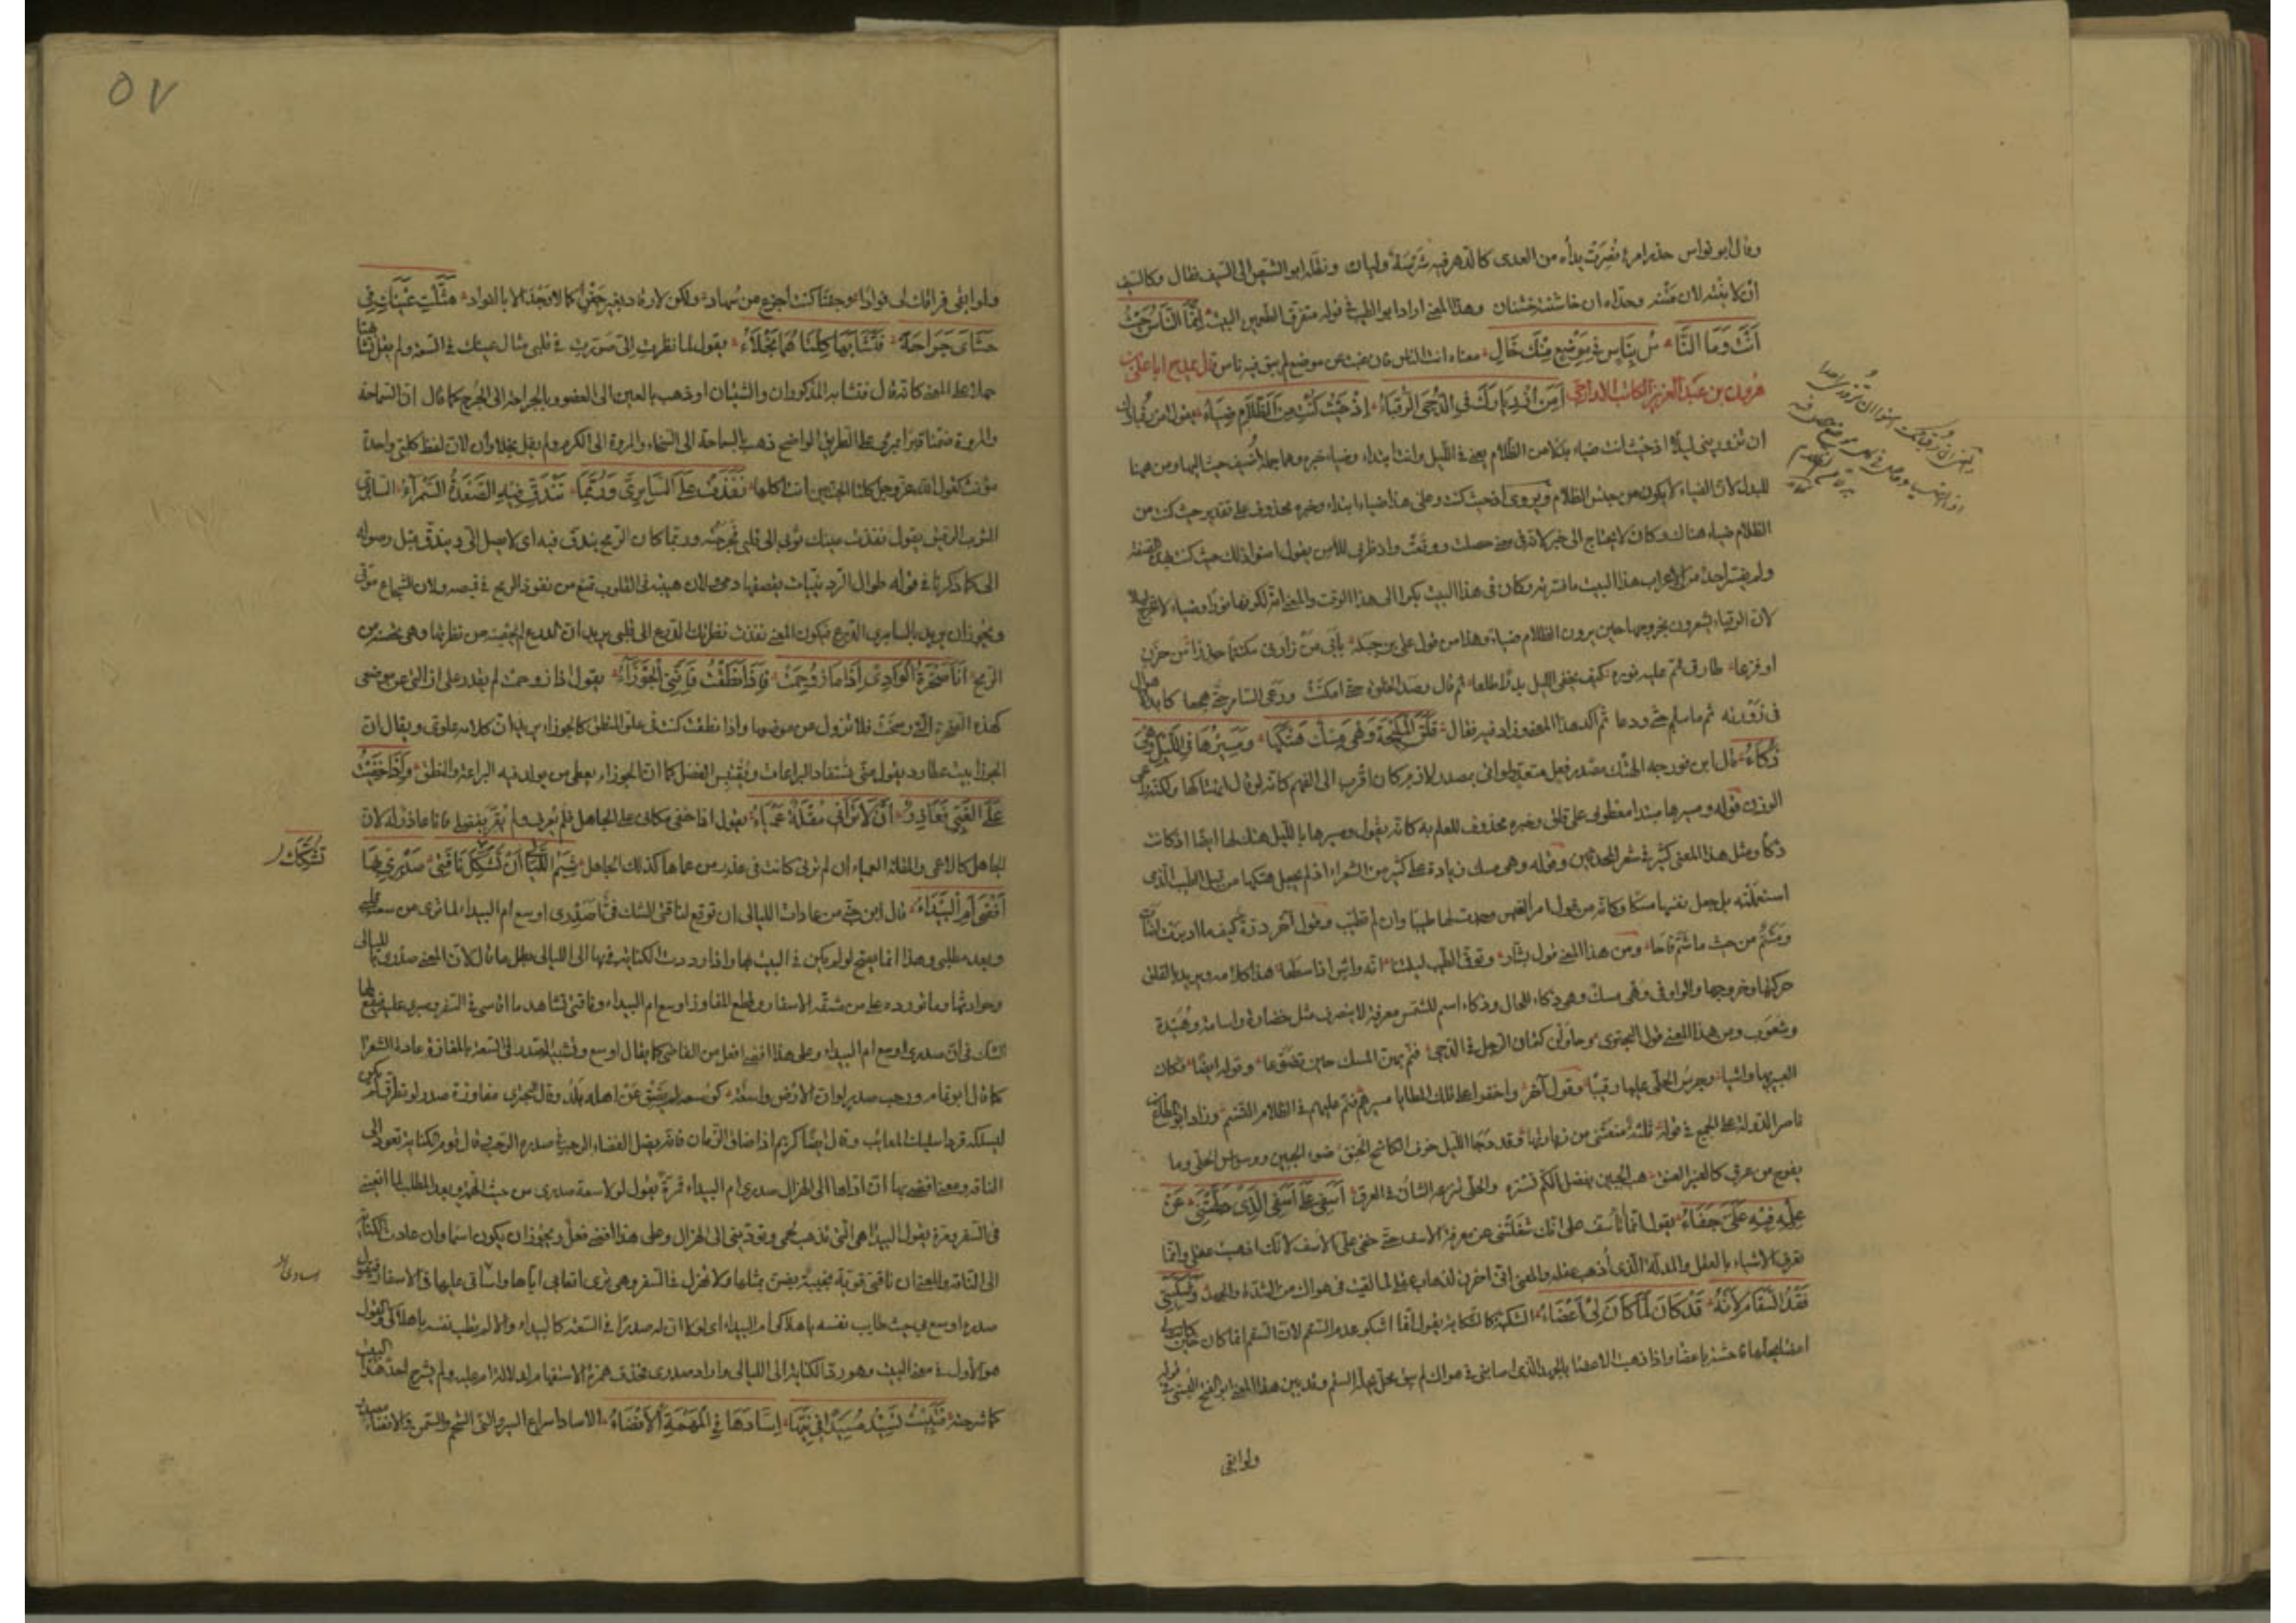 وقال ابو نواس حذر امرئ نصرت يداه من العدى كالدهر فيه شراسة وليان ونقله ابو الشيص الى السيف فقال وكالسيف
ان لاينته لان متنه وحداه ان خاشنته خشنان وهذا المعنى اراد ابو الطيب في قوله متفرق الطعمين البيت إنما الناس حيث
أنت وما النا س بناس في موضع منك خال معناه انت الناس فان غبت عن موضع لم يبق فيه ناس قال يمدح ابا على
هرون بن عبد العزيز الكاتب الاوارجى أمن ازديارك في الدجى الرقباء إذ حيث كنت من الظلام ضياء يقول امن
ان تزورينى ليلا اذ حيث انت ضياء بدلا من الظلام يعنى في الليل وانت ابتداء وضياء خبره وهما جملة أضيف حيث اليها ومن ههنا
للبدل لان الضياء لا يكون من جنس الظلام ويروى اذ حيث كنت وعلى هذا ضياء ابتداء وخبره محذوف على تقدير حيث كنت من
الظلام ضياء هناك وكان لا يحتاج الى خبر لانه في معنى حصلت ووقعت واذ ظرف للامن يقول امنوا ذلك حيث كنت بهذه الصفة
ولم يفسر احد من اعراب هذا البيت ما فسرته وكان في هذا البيت بكرا الى هذا الوقت والمعنى انه لكونها نورا وضياء لا تخرج ليلا
لان الرقباء يشعرون بخروجها حين يرون الظلام ضياء وهذا من قول على بن جبلة بأبى من زارنى مكتتما حذرا من
او فزعا طارق نم عليه نوره كيف يخفى الليل بدرا طلعا ثم قال رصد الخلوة حتى امكنت ورعى السامر حتى هجعا كابد الاهوال
فى زورته ثم ما سلم حتى ودعا ثم اكد هذا المعنى وزاد فيه فقال قلق المليحة وهى مسك هتكها ومسيرها في الليل وهى
ذكاء قال ابن فورجه الهتك مصدر فعل متعد ولو اتى بمصدر لازم كان اقرب الى الفهم كانه لو قال انهتاكها ولكنه راعى
الوزن قوله ومسيرها مبتدا معطوف على قلق وخبره محذوف للعلم به كانه يقول ومسيرها بالليل هتك لها ايضا اذ كانت
ذكاء ومثل هذا المعنى كثير في شعر المحدثين وقوله وهى مسك زيادة على كثير من الشعراء اذ لم يجعل هتكها من قبل الطيب الذى
استعملته بل جعل نفسها مسكا وكانه من قول امرء القيس وجدت لها طيبا وان لم تطيب وقول آخر درة كيف ما اديرت اضاءت
ومشم من حيث ما شم فاحا ومن هذا المعنى قول بشار وتوق الطيب ليلتنا انه واش اذا سطعا هذا كلامه ويريد بالقلق
حركتها وخروجها والواو في وهى مسك وهى ذكاء للحال وذكاء اسم للشمس معرفة لا ينصرف مثل خضارة واسامة وهنيدة
وشعوب ومن هذا المعنى قول البحترى وحاولن كتمان الترحل في الدجى فنم بهن المسك حين تضوعا وقوله ايضا فكان
العبير بها واشيا وجرس الحلى عليها رقيبا وقول آخر واخفوا على تلك المطايا مسيرهم فنم عليهم في الظلام التنسم وزاد ابو المطاع
ناصر الدولة على الجميع في قوله ثلثة منعتنى من زيارتها وقد دجا الليل خوف الكاشح الحنق ضوء الجبين ووسواس الحلى وما
يفوح من عرق كالعنبر العبق هب الجبين بفضل الكم تستره والحلى تنزعه الشان في العرق أسفى على أسفى الذى دلهتنى عن
علمه فبه على خفاء يقول انما تاسف على انك شغلتنى عن معرفة الاسف حتى خفى على الاسف لانك اذهبت عقلى وانما
تعرف الاشياء بالعقل والمدله الذى أذهب عقله والمعنى انى احزن لذهاب عقلى لما لقيت في هواك من الشدة والجهد وشكيتى
فقد السقام لانه قد كان لما كان لى أعضاء الشكية كالشكاية يقول انما اشكو عدم السقم لان السقم انما كان حين كانت لى
اعضاء يحلها فاحسه باعضاء واذا ذهبت الاعضاء بالجهد الذى اصابنى في هواك لم يبق محل يحله السقم وقد بين هذا المعنى ابو الفتح البستى في قوله
ولو ابقى
٥٧
ولو ابقى فراقك لى فوادا وجفنا كنت اجزع من سهاد ولكن لا رقاد بغير جفن كما لا وجد الا بالفواد مثلت عينك في
حشاى جراحة فتشابها كلتاهما نجلاء يقول لما نظرت الى صورت في قلبى مثال عينك في السعة ولم يقل تشابهتا
حملا على المعنى كانه قال فتشابه المذكوران والشيئان او ذهب بالعين الى العضو وبالجراحة الى الجرح كما قال ان السماحة
والمروة ضمنا قبرا بمرو على الطريق الواضح ذهب بالسماحة الى السخاء والمروة الى الكرم ولم يقل نجلاوان لان لفظ كلتى واحدة
مؤنث كقول الله عز وجل كلتا الجنتين آتت اكلها نفذت على السابرى وربما تندق فيه الصعدة السمراء السابرى
الثوب الرقيق يقول نفذت عينك ثوبى الى قلبى فجرحته وربما كان الرمح يندق فيه اى لا يصل الى ويندق قبل وصوله
الى كما ذكرنا في قوله طوال الردينيات يقصفها دمى لان هيبته فى القلوب تمنع من نفوذ الرمح في قميصه ولان الشجاع موقى
ويجوز ان يريد بالسابرى الدرع فيكون المعنى نفذت نظرتك الدرع الى قلبى يريد ان الدرع لم تحصنه من نظرتها وهى تحصنه من
الرمح أنا صخرة الوادى إذا ما زوحمت فإذا نطقت فإننى الجوزاء يقول اذا زوحمت لم يقدر على ازالتى عن موضعى
كهذه الصخرة التى رسخت فلا تزول من موضعها واذا نطقت كنت في علو المنطق كالجوزاء يريد ان كلامه علوى ويقال ان
الجوزا بيت عطارد يقول منى تستفاد البراعات ويقتبس الفضل كما ان الجوزاء يعطى من يولد فيه البراعة والنطق وإذا خفيت
على الغبى فعاذر أن لا ترانى مقلة عمياء يقول اذا خفى مكانى على الجاهل فلم يعرفنى ولم يقر بفضلى فانا عاذر له لان
الجاهل كالاعمى والمقلة العمياء ان لم ترنى كانت في عذر من عماها كذلك الجاهل شيم الليالى أن تشكك ناقتى صدرى بها
أفضى أم البيداء قال ابن جنى من عادات الليالى ان توقع لناقتى الشك في أصدرى اوسع ام البيداء لما ترى من سعة قلبى
وبعد مطلبى وهذا انما يصح لو لم يكن في البيت بها واذا رددت الكناية في بها الى الليالى بطل ما قال لان المعنى صدرى بالليالى
وحوادثها وما تورده على من مشقة الاسفار وقطع المفاوز اوسع ام البيداء وناقتى تشاهد ما اقاسى في السفر وصبرى عليه فيقع لها
الشك فى ان صدرى اوسع ام البيداء وعلى هذا افضى افعل من الفاضى كما يقال اوسع وتشبيه الصدر في السعة بالمفازة عادة الشعرا
كما قال ابو تمام ورحب صدر لو ان الارض واسعة كوسعه لم يضق عن اهله بلد وقال البحترى مفازة صدر لو تطرق لم يكن
ليسلكه فردا سليك المقانب وقال ايضا كريم اذا ضاق الزمان فانه يضل الفضاء الرحب في صدره الرحب قال قوم الكناية تعود الى
الناقة ومعنى افضى بها ان اداها الى الهزال صدرى ام البيداء فمرة يقول لولا سعة صدرى من حيث الهمة وبعد المطلب لما اتعبنى
في السفر ومرة يقول البيداء هى التى تذهب لحمى وتؤدينى الى الهزال وعلى هذا افضى فعل ويجوز ان يكون اسما وان عادت الكناية
الى الناقة والمعنى ان ناقتى قوية نجيبة يضن بمثلها ولا تهزل في السفر وهى ترى اتعابى اياها واسآدى عليها في الاسفار فتقول
صدره اوسع بى حيث طابت نفسه باهلاكى ام البيداء اى لولا ان له صدرا في السعة كالبيداء والا لم يطب نفسه باهلاكى والقول
هو الاول في معنى البيت وهو رد الكناية الى الليالى واراد أصدرى فحذف همزة الاستفهام لدلالة ام عليه ولم يشرح احد هذا البيت
كما شرحته فتبيت تسئد مسئدا في نيها إسآدها في المهمه الانضاء الاساد اسراع السير والنى الشحم والسمن والانضاء مصدر
تشكك